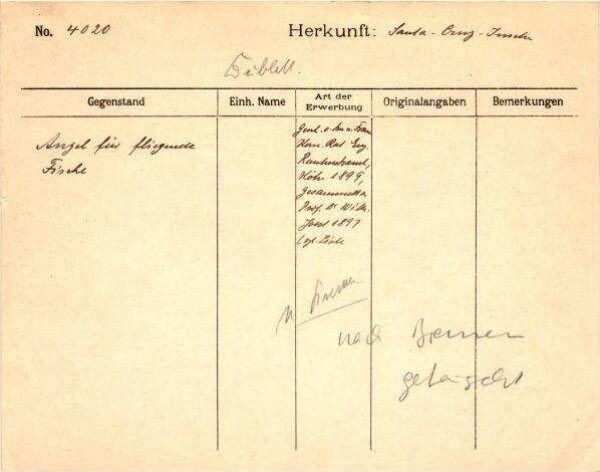 No. 4020
Herkunft: Santa-Cruz-Inseln
Dublett.
Gegenstand
Einh. Name
Art der Erwerbung
Originalangaben
Bemerkungen
Angel für fliegende
Fische
Gesch. v. Hrn u. Frau
Kom. Rat Eug.
Rautenstrauch,
Köln 1899,
gesammelt v.
Prof. Dr. Wilh.
Joest 1897
n. Bremen
nach Bremen
getauscht